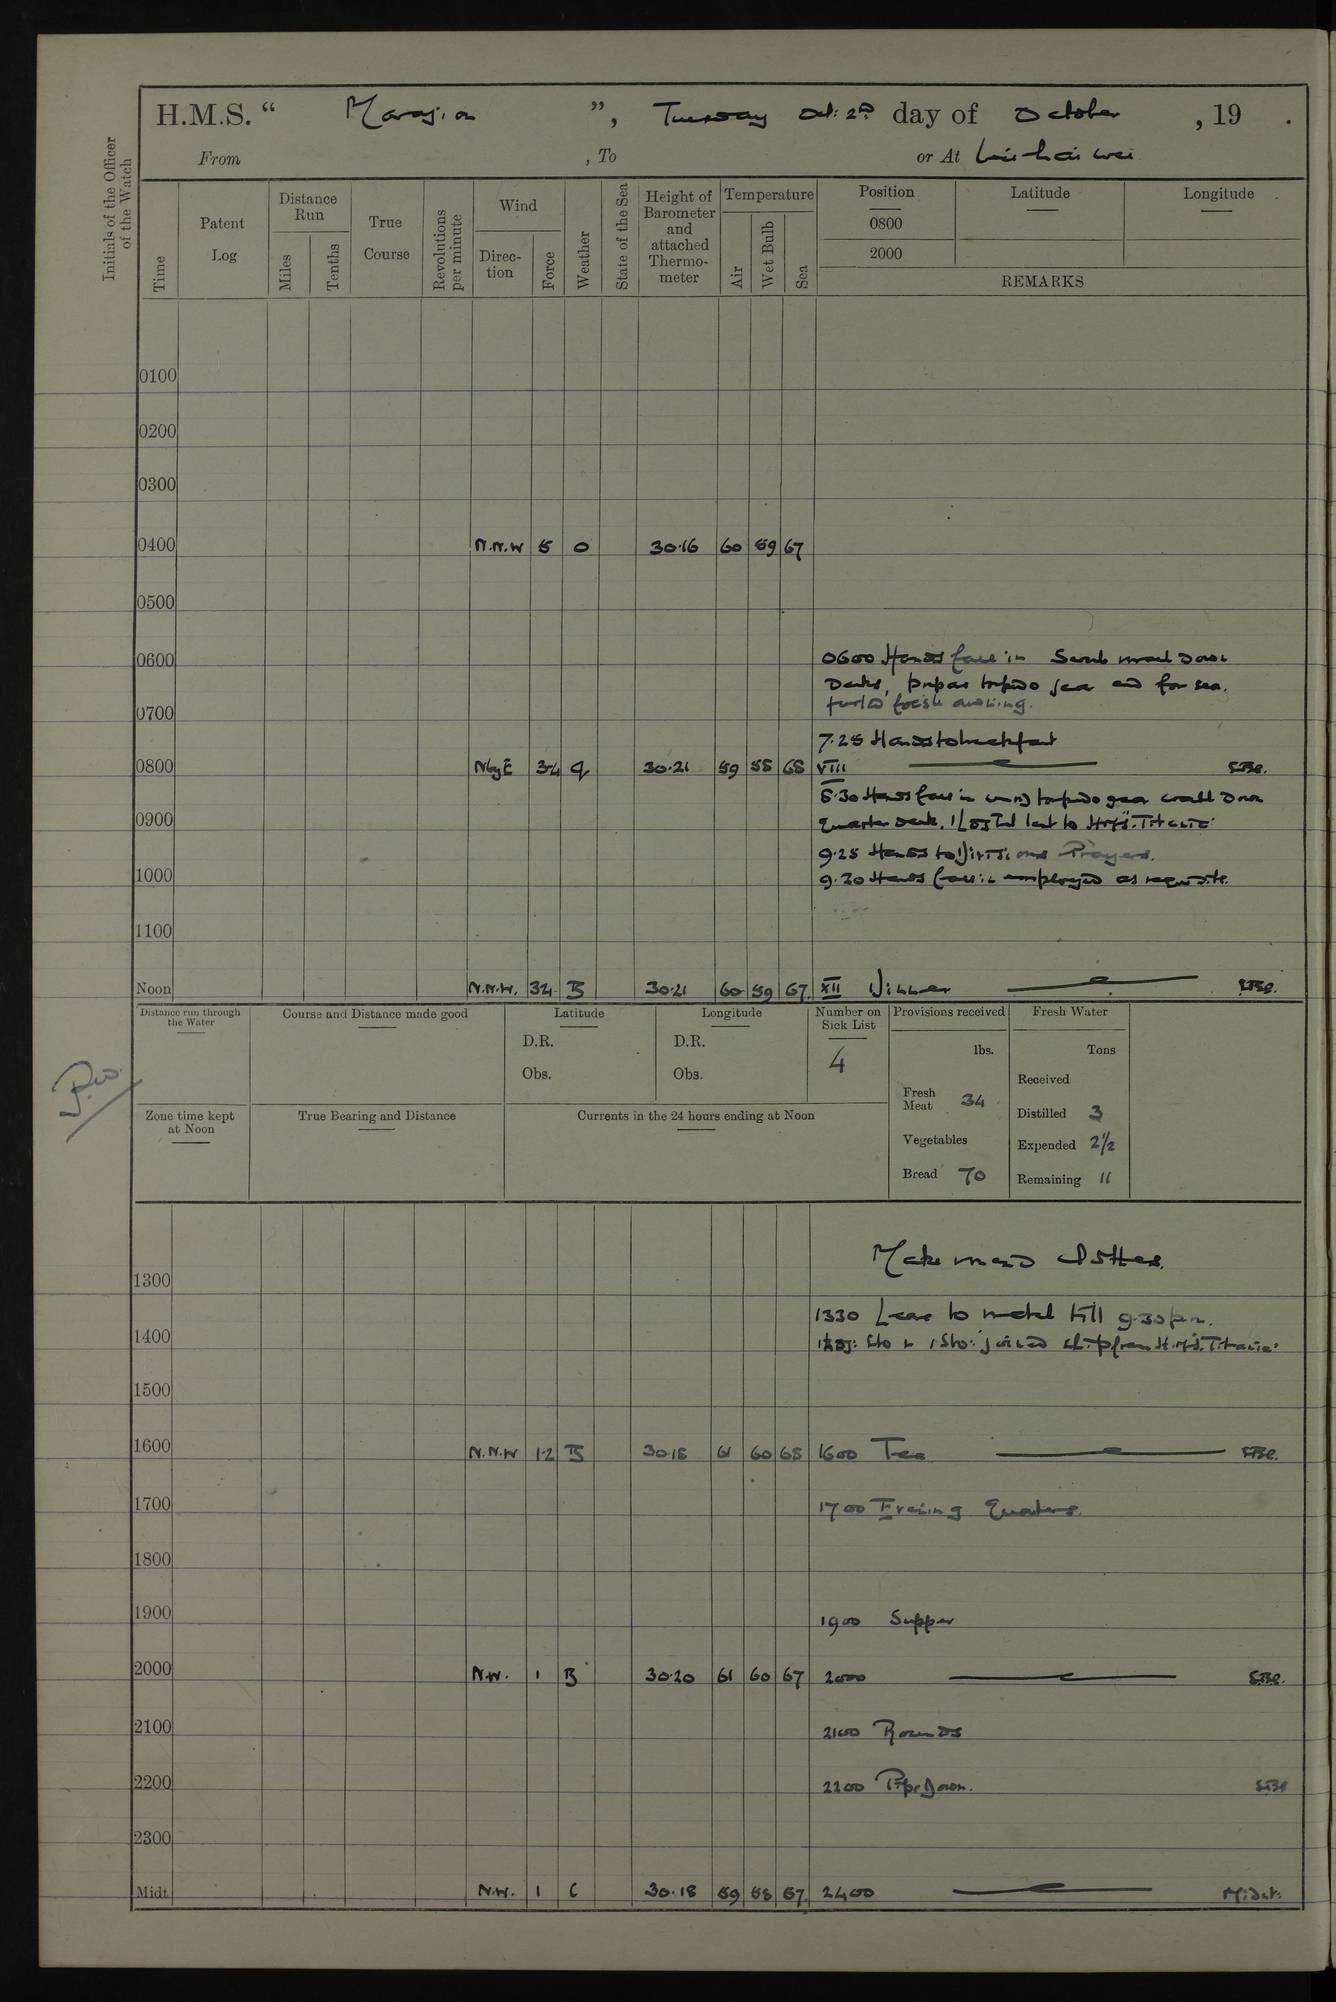 H.M.S. “ Marazion ”, Tuesday Oct: 2nd day of October , 19 .
From , To or At Wei-hai-wei
Initials of the Officer of the Watch
Time
Patent Log
Distance Run
Miles
Tenths
True Course
Revolutions per minute
Wind
Direc-tion
Force
Weather
State of the Sea
Height of Barometer and attached Thermo-meter
Temperature
Air
Wet Bulb
Sea
Position
Latitude
Longitude
0800
2000
REMARKS
0100
0200
0300
0400 N.N.W 5 O 30.16 60 59 67
0500
0600 0600 Hands fall in Scrub wash down
Decks, prepare torpedo gear and for sea.
furled foc'sle awning.
0700
7.25 Hands to breakfast
0800 N by E 3-4 30.21 59 55 65 VIII
8.30 Hands fall in torpedo gear wash down
0900 Quarter deck. 1 lent to H.M.S. "Titania"
9.25 Hands to Divisions Prayers.
1000 9.30 Hands fall in employed as requisite.
1100
Noon N.N.W. 3-4 B 30.21 60 59 67 XII Dinner
Distance run through the Water
Course and Distance made good
Latitude
D.R.
Obs.
Longitude
D.R.
Obs.
Number on Sick List
4
Provisions received
lbs.
Fresh Meat 34
Vegetables
Bread 70
Fresh Water
Tons
Received
Distilled 3
Expended 2½
Remaining 11
Zone time kept at Noon
True Bearing and Distance
Currents in the 24 hours ending at Noon
Make mend clothes.
1300
1330 Leave to watch till 9.30 pm.
1400 Sto & 1 Sto: joined ship from H.M.S. "Titania"
1500
1600 N.N.W 1-2 B 30.18 61 60 68 1600 Tea
1700 1700 Evening Quarters.
1800
1900 1900 Supper
2000 N.W. 1 B 30.20 61 60 67 2000
2100 2100 Rounds
2200 2200 Pipe Down.
2300
Midt. N.W. 1 C 30.18 59 58 67 2400 Midnt.